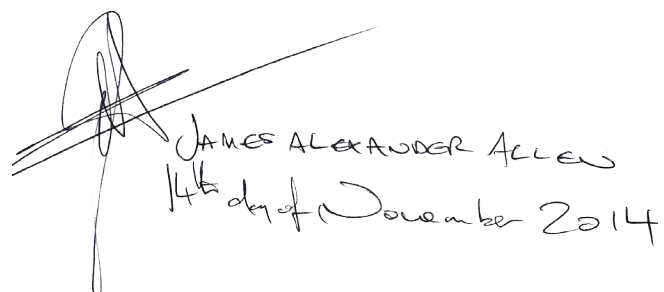 JAMES ALEXANDER ALLEN
14th day of November 2014